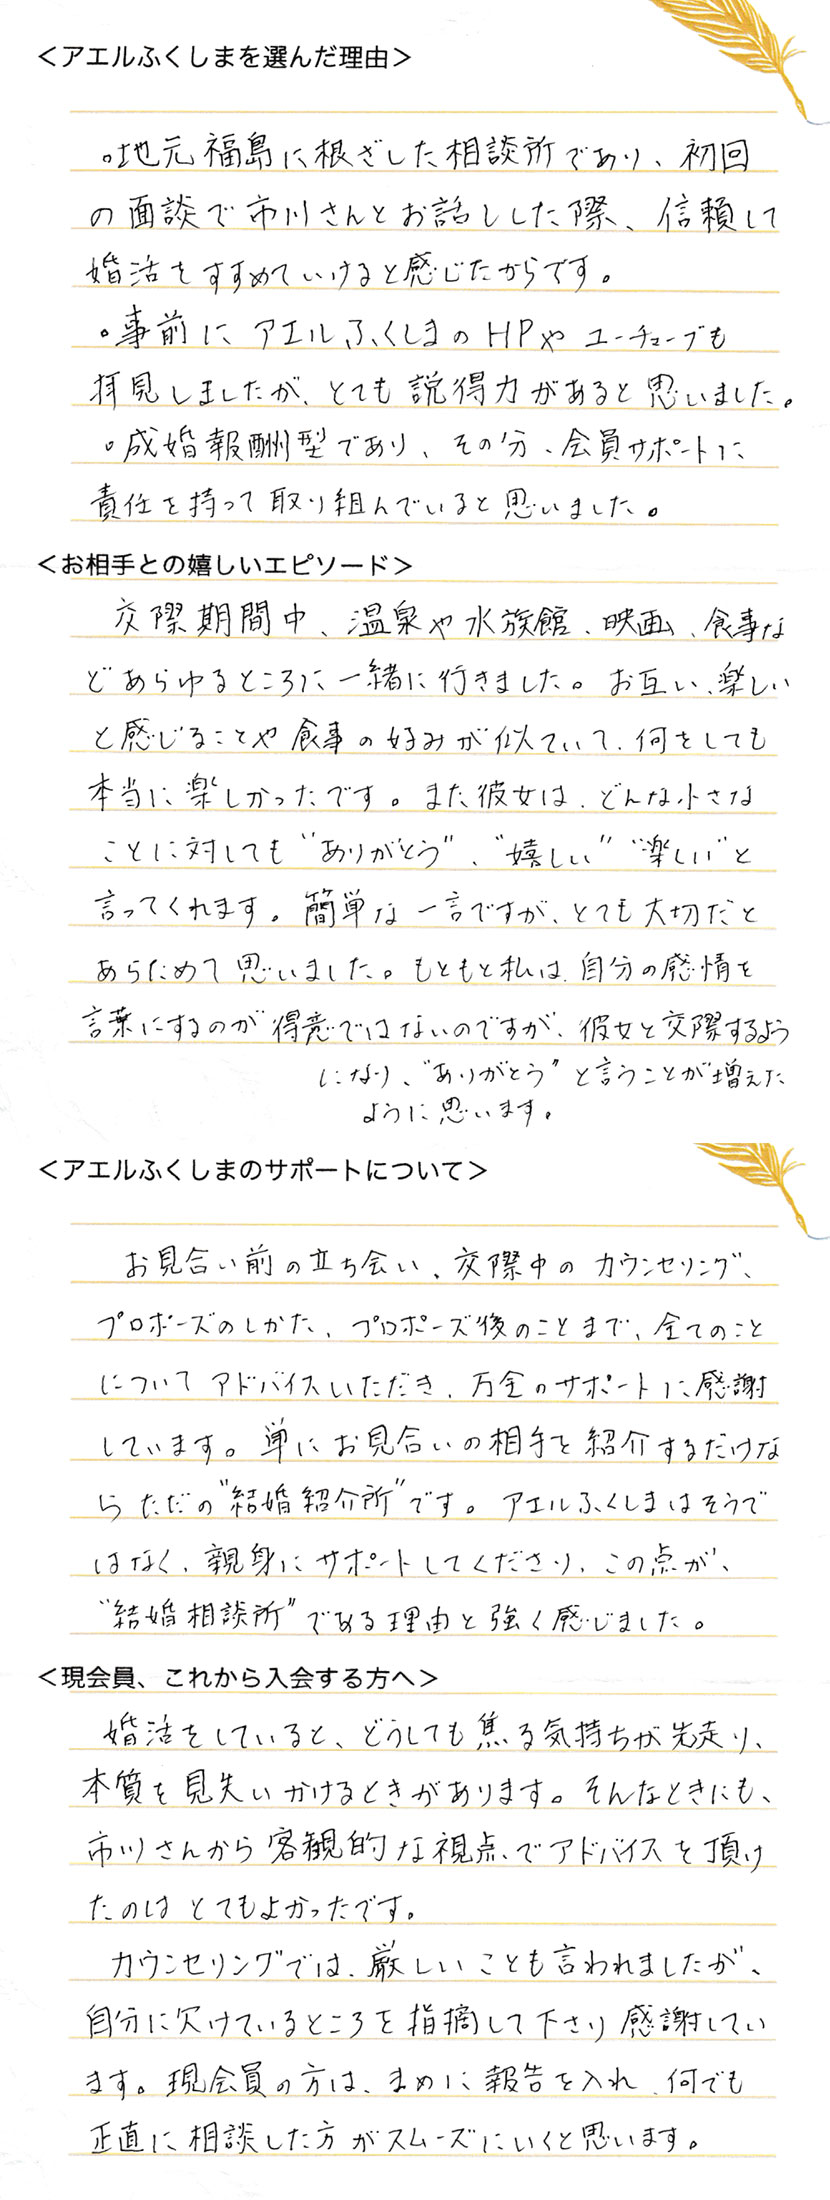 ＜アエルふくしまを選んだ理由＞
。地元福島に根ざした相談所であり、初回
の面談で市川さんとお話しした際、信頼して
婚活をすすめていけると感じたからです。
。事前に アエルふくしまのHPや ユーチューブも
拝見しましたが、とても説得力があると思いました。
。成婚報酬型であり、その分、会員サポートに
責任を持って取り組んでいると思いました。
＜お相手との嬉しいエピソード＞
交際期間中、温泉や水族館、映画、食事な
どあらゆるところに一緒に行きました。お互い、楽しい
と感じることや食事の好みが似ていて、何をしても
本当に楽しかったです。また彼女は、どんな小さな
ことに対しても“ありがとう”、“嬉しい”“楽しい”と
言ってくれます。簡単な一言ですが、とても大切だと
あらためて思いました。もともと私は、自分の感情を
言葉にするのが得意ではないのですが、彼女と交際するよう
になり、“ありがとう”と言うことが増えた
ように思います。
＜アエルふくしまのサポートについて＞
お見合い前の立ち会い、交際中のカウンセリング、
プロポーズのしかた、プロポーズ後のことまで、全てのこと
についてアドバイスいただき、万全のサポートに感謝
しています。単にお見合いの相手を紹介するだけな
らただの“結婚紹介所”です。アエルふくしまはそうで
はなく、親身にサポートしてくださり、この点が、
“結婚相談所”である理由と強く感じました。
＜現会員、これから入会する方へ＞
婚活をしていると、どうしても焦る気持ちが先走り、
本質を見失いかけるときがあります。そんなときにも、
市川さんから客観的な視点でアドバイスを頂け
たのはとてもよかったです。
カウンセリングでは、厳しいことも言われましたが、
自分に欠けているところを指摘して下さり感謝してい
ます。現会員の方は、まめに報告を入れ、何でも
正直に相談した方がスムーズにいくと思います。